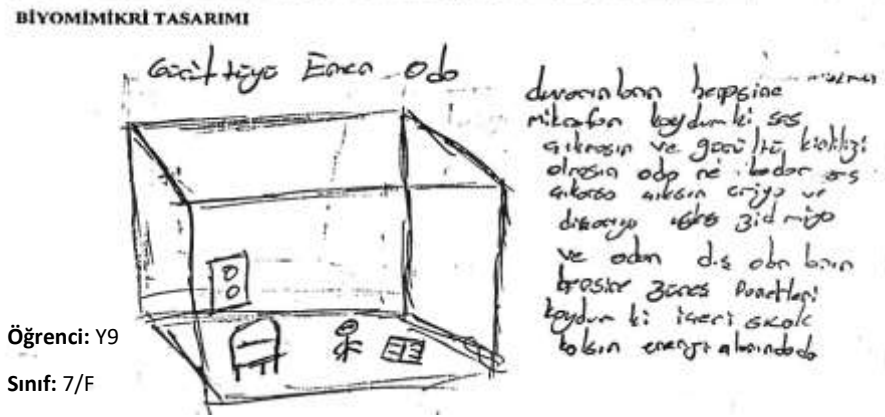 BİYOMİMİKRİ TASARIMI
Gürültüyü Emen Oda
duvarın hepsine
mikrafon koydum ki ses
çıkmasın ve gürültü kirliliği
olmasın oda ne kadar ses
çıkarsa çıksın emiyo ve
dışarıya ses gidmiyo
ve odan dış
güneş Panelleri
koydum ki içeri sıcak
kalsın enerji
Öğrenci: Y9
Sınıf: 7/F